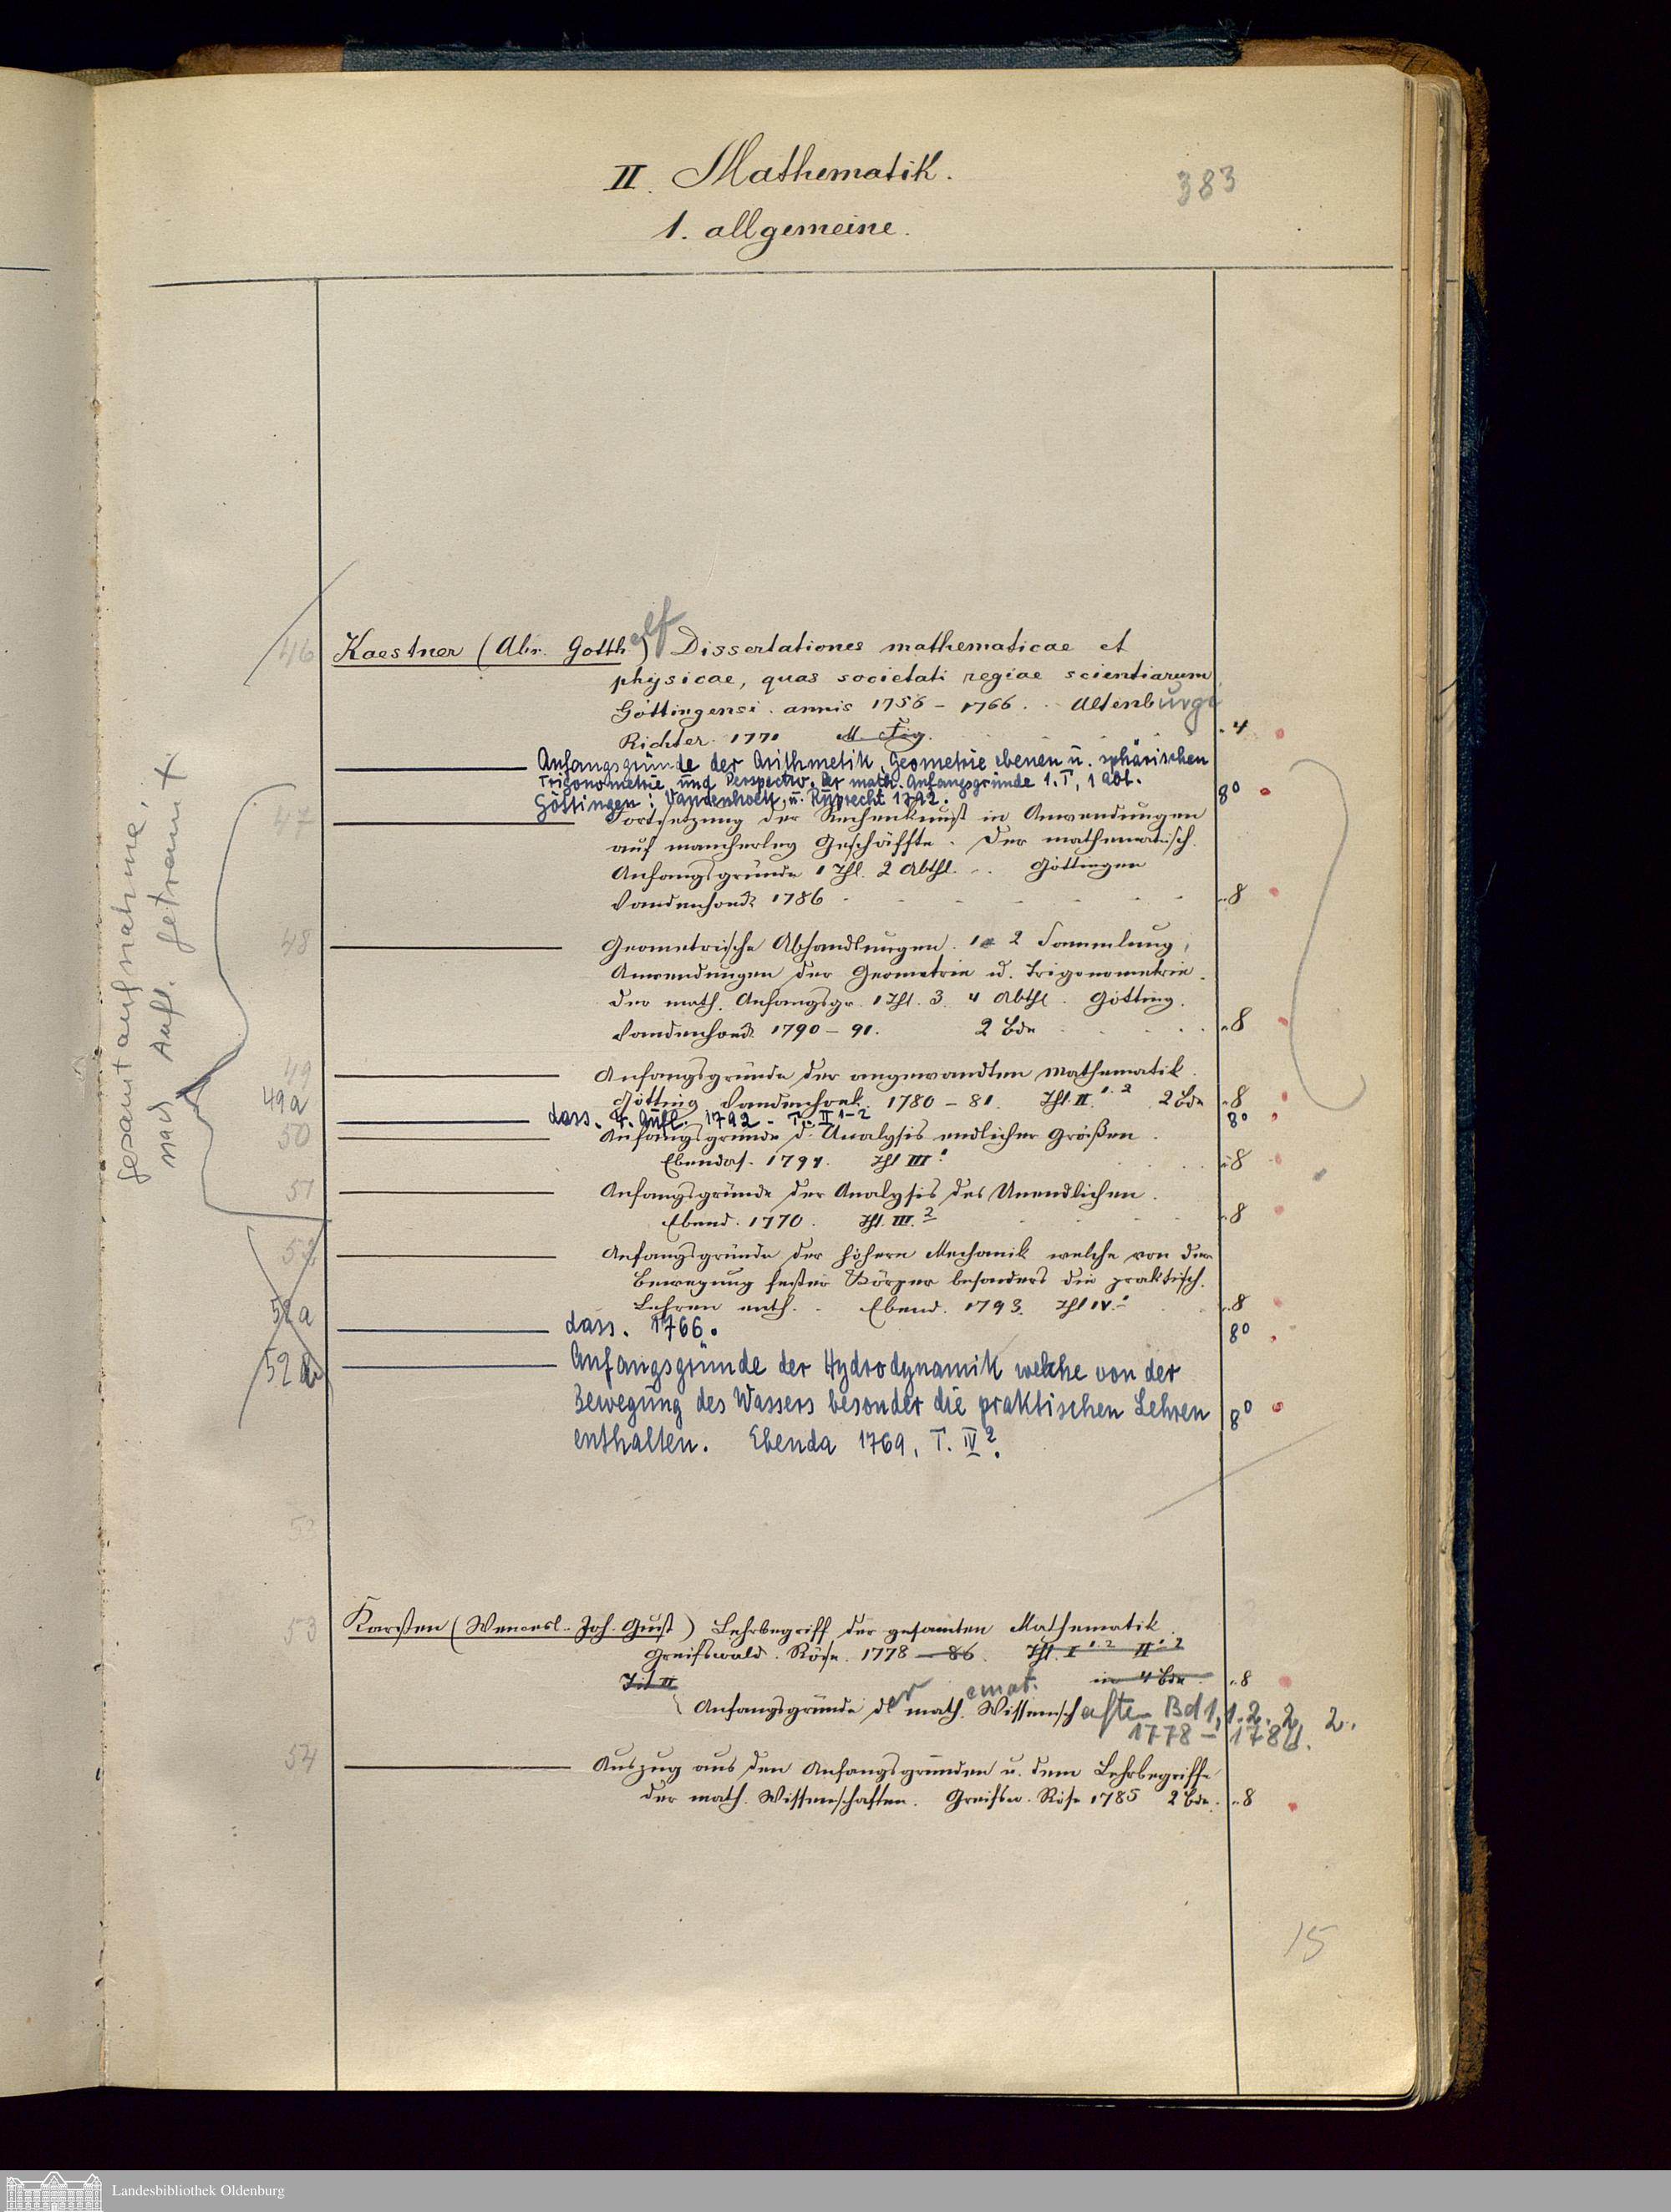 II. Mathematik.
383
1. allgemeine.
46 Kaestner (Abr. Gotthelf) Dissertationes mathematicae et
physicae, quas societati regiae scientiarum
Göttingensi annis 1756 – 1766. Altenburgi
Richter 1771 M. Fig. 4
Anfangsgründe der Arithmetik, Geometrie ebenen u. sphärischen
Trigonometrie und Perspectiv. Der math. Anfangsgründe 1. T, 1 Abt.
Göttingen: Vandenhoek u. Ruprecht 1792. 8°
47 Fortsetzung der Rechenkunst in Anwendungen
auf mancherley Geschäffte. Der mathematisch.
Anfangsgründe 1 Thl. 2 Abthl. Göttingen
Vandenhoek 1786 8
48 Geometrische Abhandlungen. 1 2 Sammlung,
Anwendungen der Geometrie u. Trigonometrie.
der math. Anfangsgr. 1 Thl. 3. 4 Abthl. Götting.
Vandenhoek 1790 – 91. 2 Bde 8
49 Anfangsgründe der angewandten Mathematik.
Götting Vandenhoek. 1780 – 81. Thl. II. 1. 2 2 Bde 8
49a dass. 4. Aufl. 1792 - T. II 1-2 8°
50 Anfangsgründe d. Analysis endlicher Größen.
Ebendas. 1794. Thl III 1 8
51 Anfangsgründe der Analysis des Unendlichen.
Ebend. 1770. Thl. III. 2 8
52 Anfangsgründe der höhern Mechanik welche von der
Bewegung fester Körper besonders die praktisch.
Lehren enth. Ebend. 1793. Thl IV. 1 8
52a dass. 1766. 8°
52b Anfangsgründe der Hydrodynamik welche von der
Bewegung des Wassers besonder die praktischen Lehren 8°
enthalten. Ebenda 1769, T. IV 2.
53
53 Karsten (Wencesl. Joh. Gust) Lehrbegriff der gesamten Mathematik.
Greifswald. Röse. 1778 – 86. Thl. I 1. 2 II 1. 2
Thl II in 4 Bde 8
Anfangsgründe der mathemat. Wissenschaften Bd 1, 1. 2. 2, 2.
1778 – 1786.
54 Auszug aus den Anfangsgründen u. dem Lehrbegriffe
der math. Wissenschaften. Greifsw. Röse 1785 2 Bde. 8
15
Gesamtaufnahme,
nach Aufl. getrennt
Landesbibliothek Oldenburg